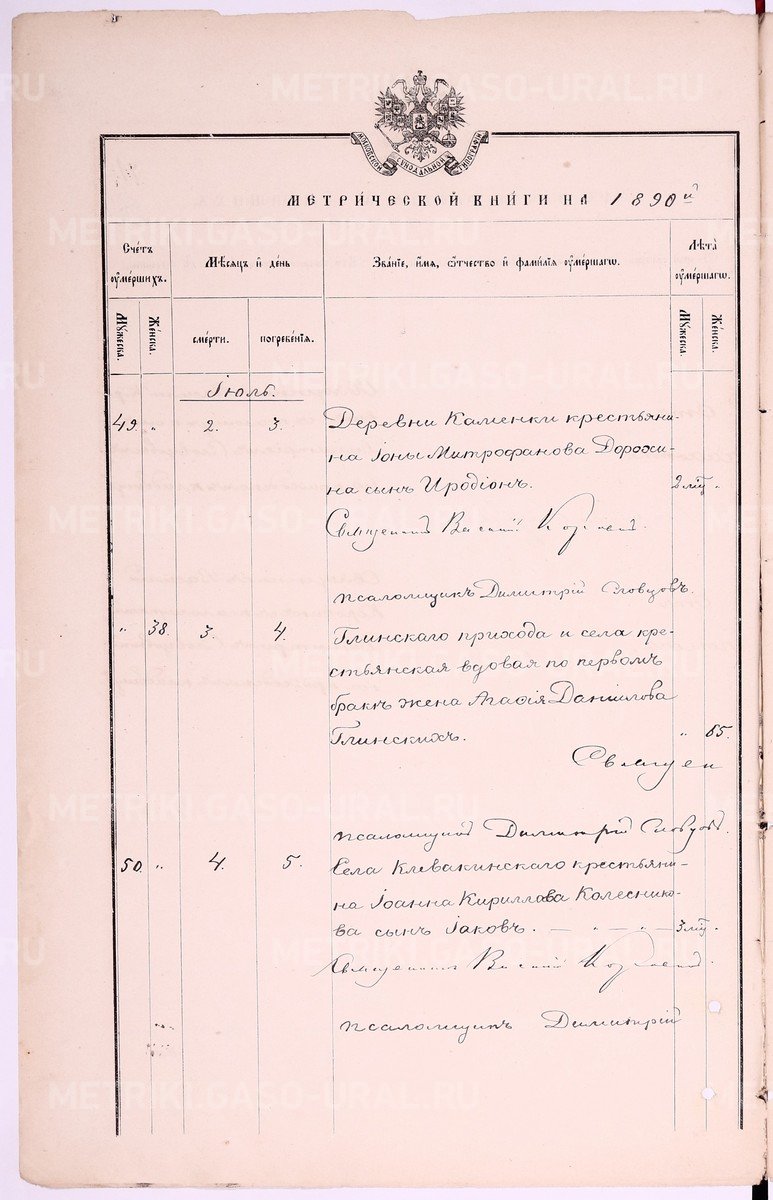 METRIKI.GASO-URAL.RU
МОСКОВСКОЙ СѴНОДАЛЬНОЙ ТИПОГРАФІИ
МЕТРИ́ЧЕСКОЙ КНИ́ГИ НА 1890й
Сче́тъ ᲂу҆ме́ршихъ.
Мѣ́сяцъ и҆ де́нь
Зва́нїе, и҆́мя, ѻ҆́тчество и҆ фами́лїя ᲂу҆ме́ршагѡ.
Лѣ́та ᲂу҆ме́ршагѡ.
Мꙋ́жеска.
Же́нска.
сме́рти.
погребе́нїя.
Мꙋ́жеска.
Же́нска.
Іюль.
49. " 2. 3. Деревни Каменки крестьяни-
на Іоны Митрофанова Дорохи-
на сынъ Иродіонъ. 2 мц. "
Священникъ Василій
псаломщикъ Димитрій
" 38. 3. 4. Глинскаго прихода и села кре-
стьянская вдовая по первомъ
бракѣ жена Агафія Даніилова
Глинскихъ. " 65.
Священ
псаломщикъ Димитрій
50. " 4. 5. Села Клевакинскаго крестьяни-
на Іоанна Кириллова Колеснико-
ва сынъ Іаковъ. — " — " — 3 мц. "
Священникъ Василій
псаломщикъ Димитрій